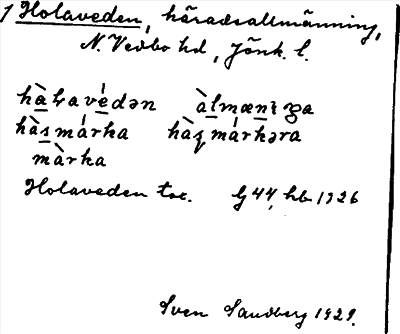 1 Holaveden, häradsallmänning,
N. Vedbo hd, Jönk. l.
hàɫavédən àlmænıŋa
hàsmárka hàșmárkəra
màrka
Holaveden toc. G 44, hb 1926
Sven Sandberg 1929.